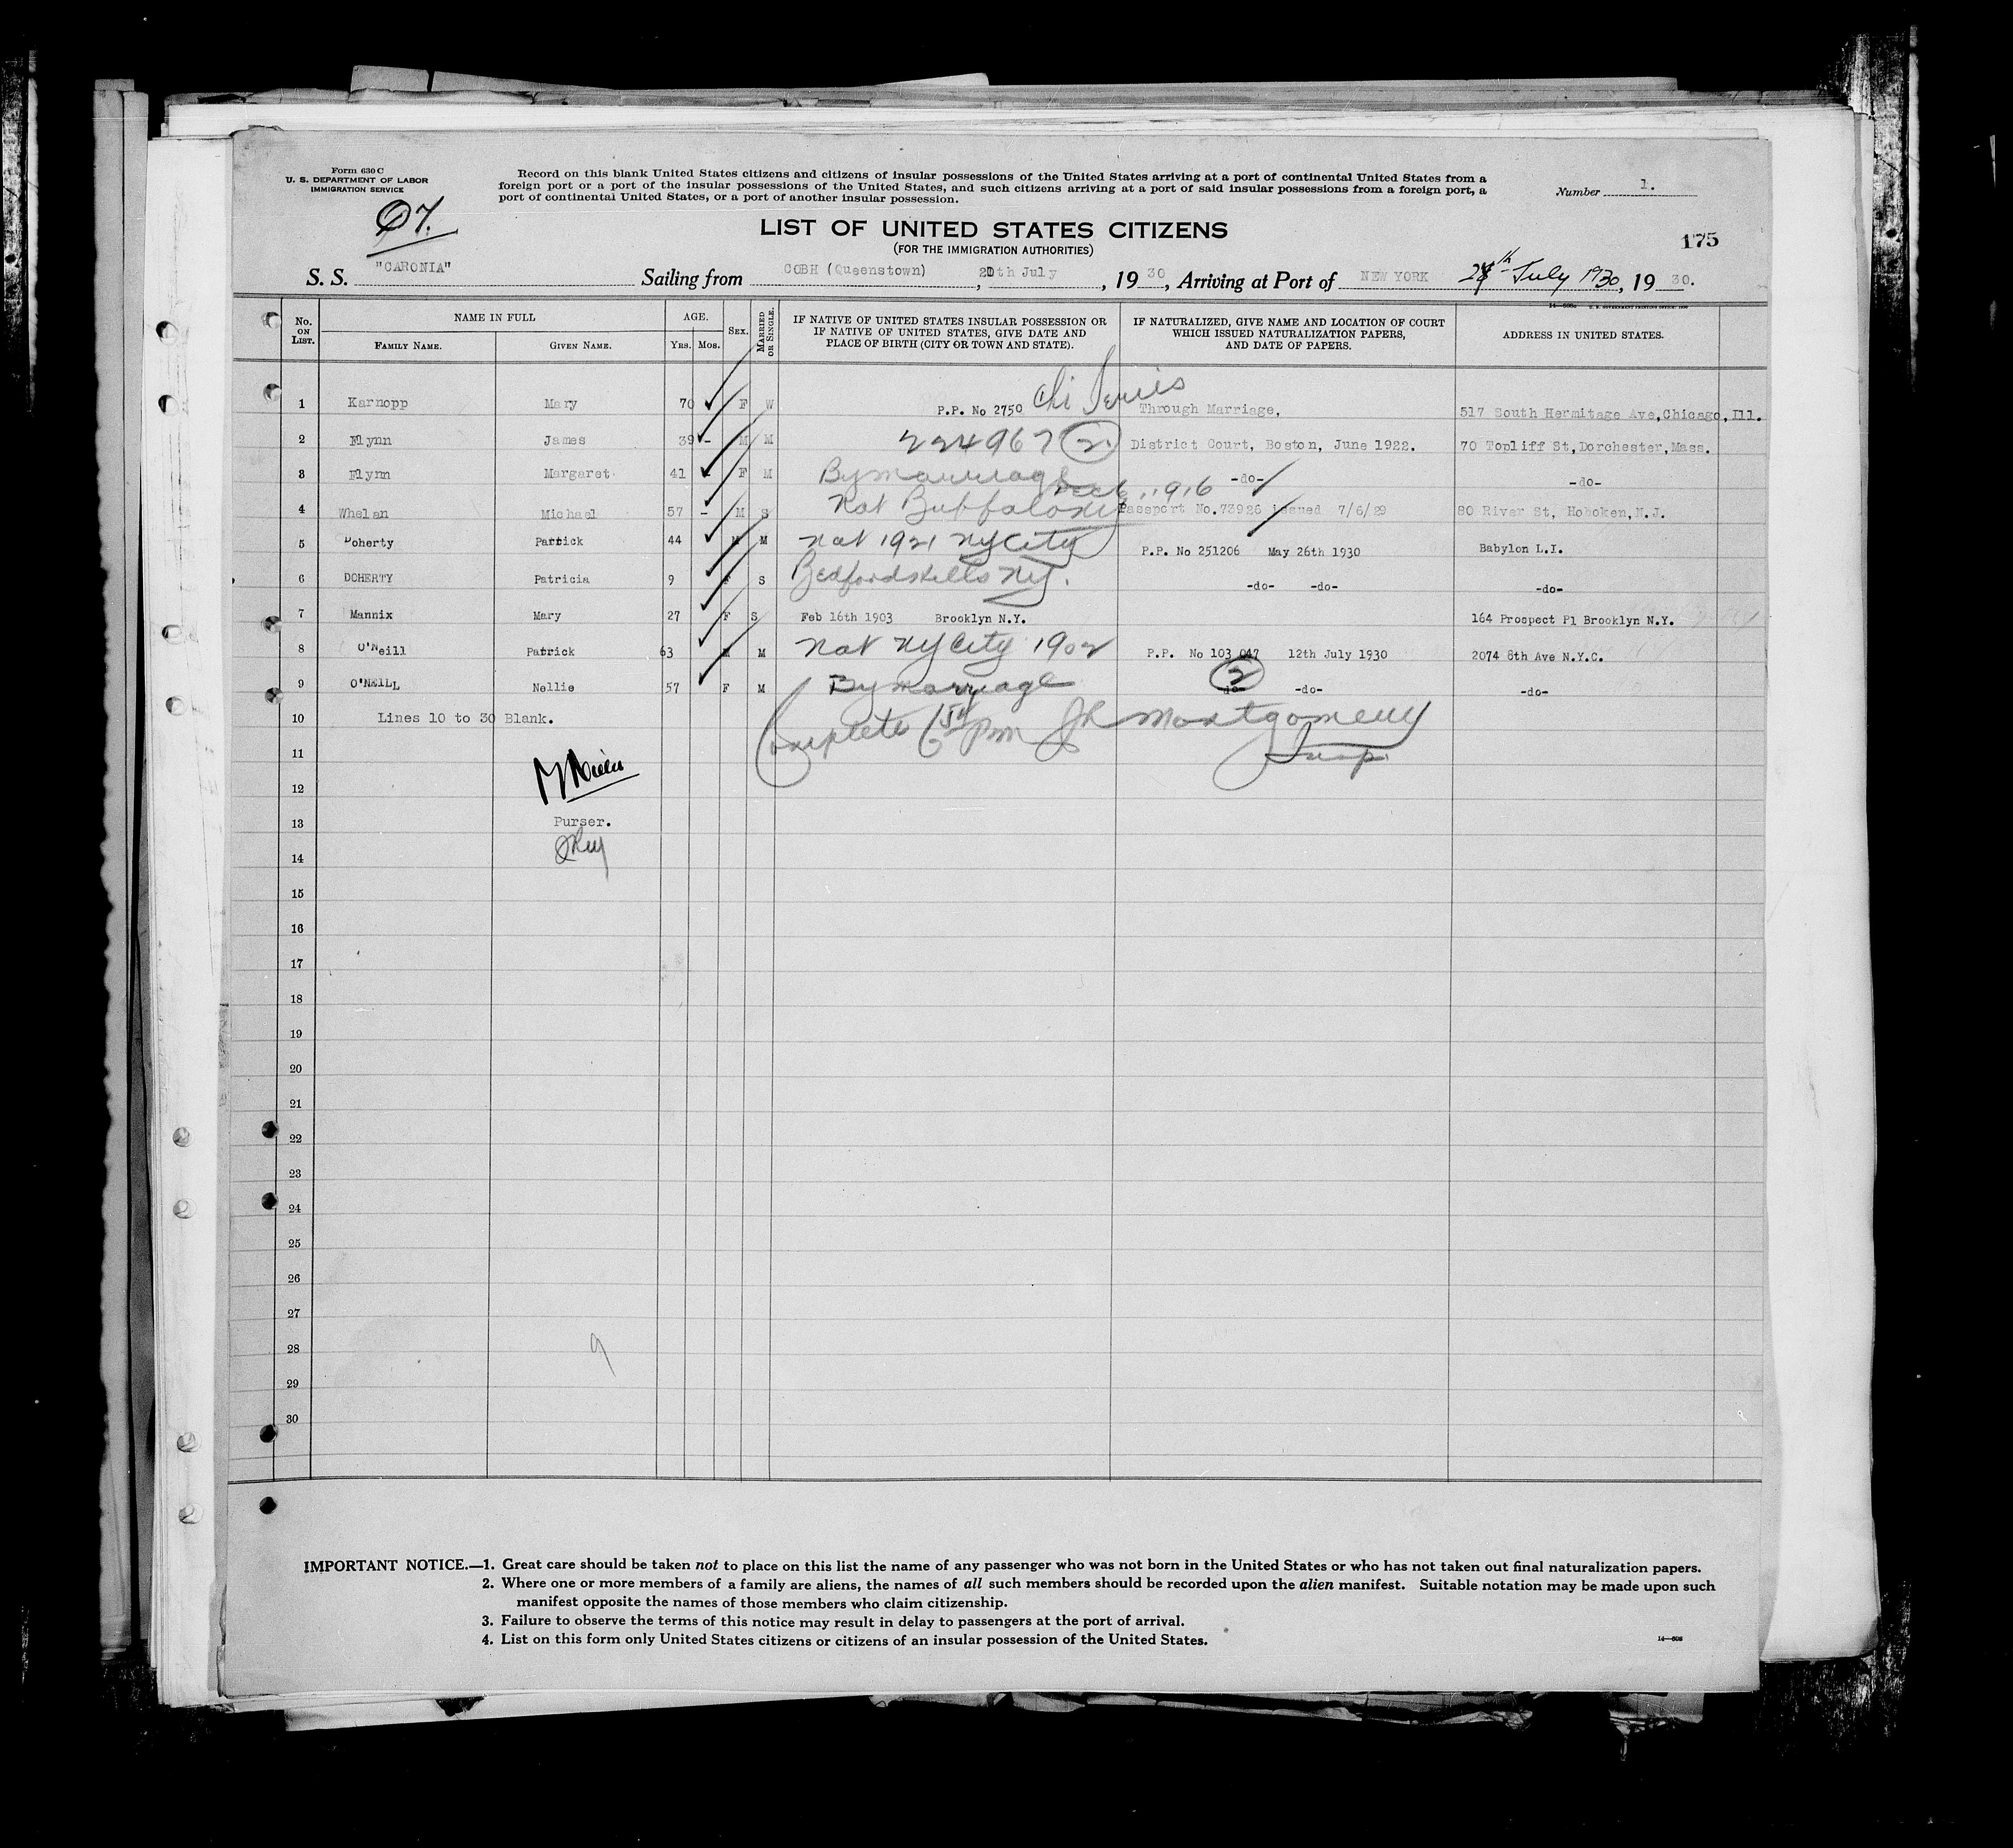 Form 630 C
U. S. DEPARTMENT OF LABOR
IMMIGRATION SERVICE
Record on this blank United States citizens and citizens of insular possessions of the United States arriving at a port of continental United States from a
foreign port or a port of the insular possessions of the United States, and such citizens arriving at a port of said insular possessions from a foreign port, a
port of continental United States, or a port of another insular possession.
Number 1.
LIST OF UNITED STATES CITIZENS
(FOR THE IMMIGRATION AUTHORITIES)
175
S. S. "CARONIA" Sailing from COBH (Queenstown), 20th July, 1930, Arriving at Port of NEW YORK 28th July 1930, 1930.
No. ON LIST. NAME IN FULL FAMILY NAME. GIVEN NAME. AGE. Yrs. Mos. SEX. MARRIED OR SINGLE. IF NATIVE OF UNITED STATES INSULAR POSSESSION OR IF NATIVE OF UNITED STATES, GIVE DATE AND PLACE OF BIRTH (CITY OR TOWN AND STATE). IF NATURALIZED, GIVE NAME AND LOCATION OF COURT WHICH ISSUED NATURALIZATION PAPERS, AND DATE OF PAPERS. ADDRESS IN UNITED STATES.
1 Karnopp Mary 70 F W P.P. No 2750 Through Marriage, 517 South Hermitage Ave,Chicago,Ill.
2 Flynn James 39 - M M 224967 2 District Court, Boston, June 1922. 70 Topliff St,Dorchester,Mass.
3 Flynn Margaret 41 - F M By marriage -do- -do-
4 Whelan Michael 57 - M S Nat Buffalo NY 1916 Passport No.73926 issued 7/6/29 80 River St, Hoboken,N.J.
5 Doherty Patrick 44 M M Nat 1921 NY City P.P. No 251206 May 26th 1930 Babylon L.I.
6 DOHERTY Patricia 9 F S Bedford Hills N.Y. -do- -do- -do-
7 Mannix Mary 27 F S Feb 16th 1903 Brooklyn N.Y. 164 Prospect Pl Brooklyn N.Y.
8 O'Neill Patrick 63 M M Nat NY City 1902 P.P. No 103 047 12th July 1930 2074 8th Ave N.Y.C.
9 O'NEILL Nellie 57 F M By marriage 2 -do- -do- -do-
10 Lines 10 to 30 Blank. Complete Montgomery
11 Insp.
12
13 Purser.
14
15
16
17
18
19
20
21
22
23
24
25
26
27
28 9
29
30
IMPORTANT NOTICE.—1. Great care should be taken not to place on this list the name of any passenger who was not born in the United States or who has not taken out final naturalization papers.
2. Where one or more members of a family are aliens, the names of all such members should be recorded upon the alien manifest. Suitable notation may be made upon such
manifest opposite the names of those members who claim citizenship.
3. Failure to observe the terms of this notice may result in delay to passengers at the port of arrival.
4. List on this form only United States citizens or citizens of an insular possession of the United States.